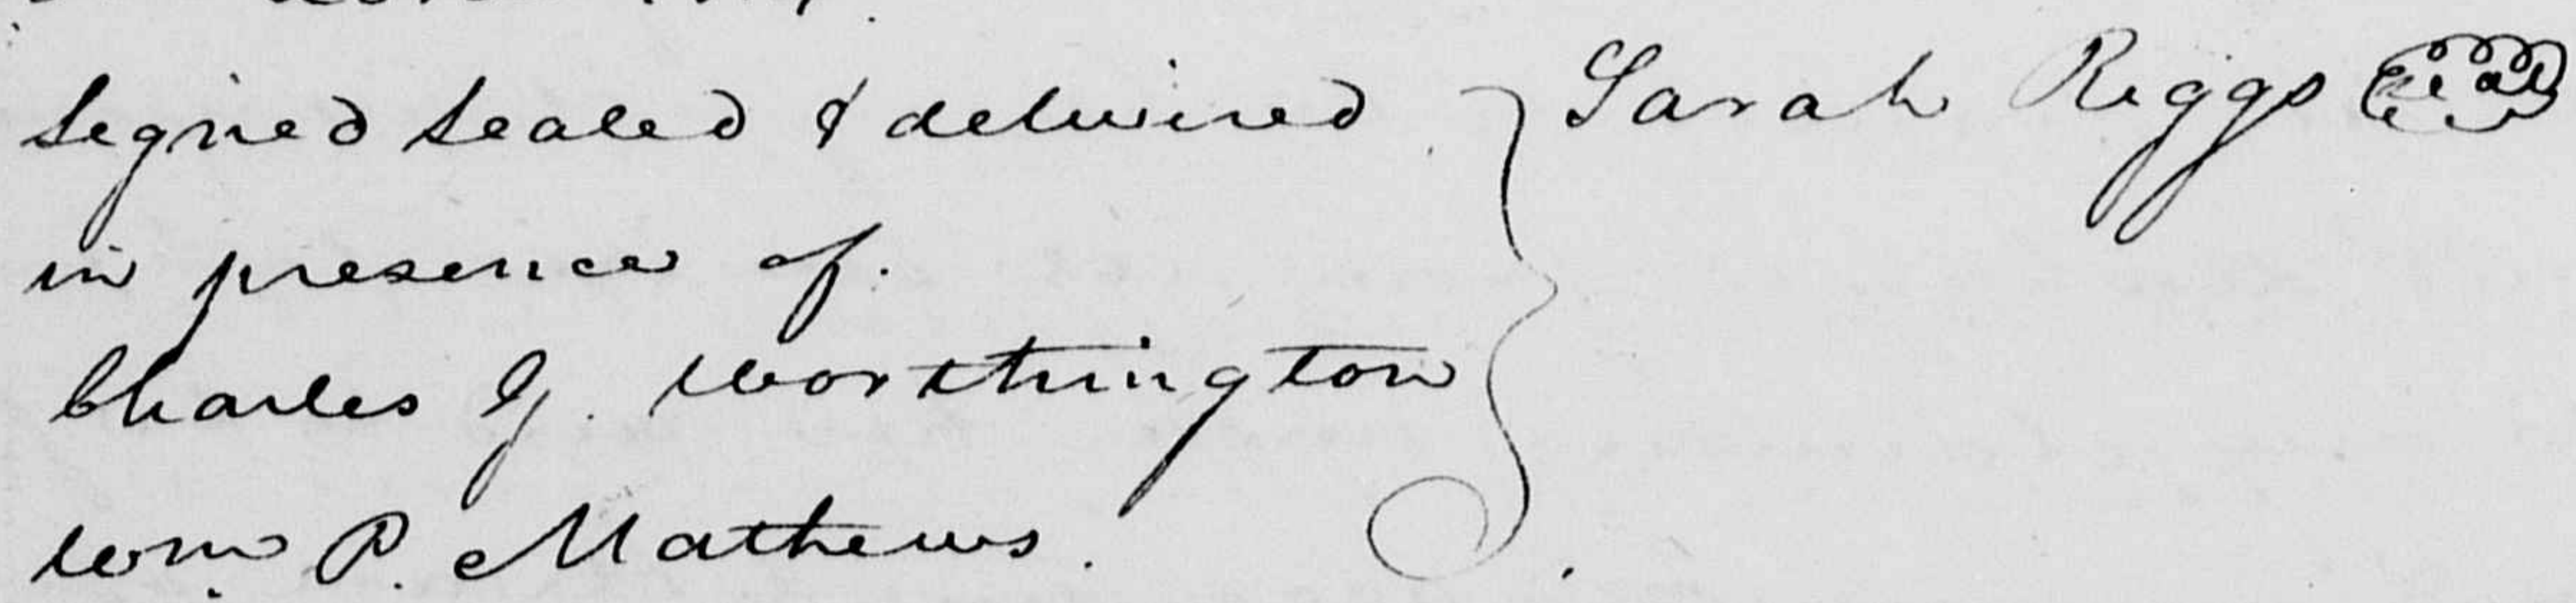 Signed Sealed & delivered
in presence of.
Charles G. Worthington
Wm P. Mathews.
Sarah Riggs Seal